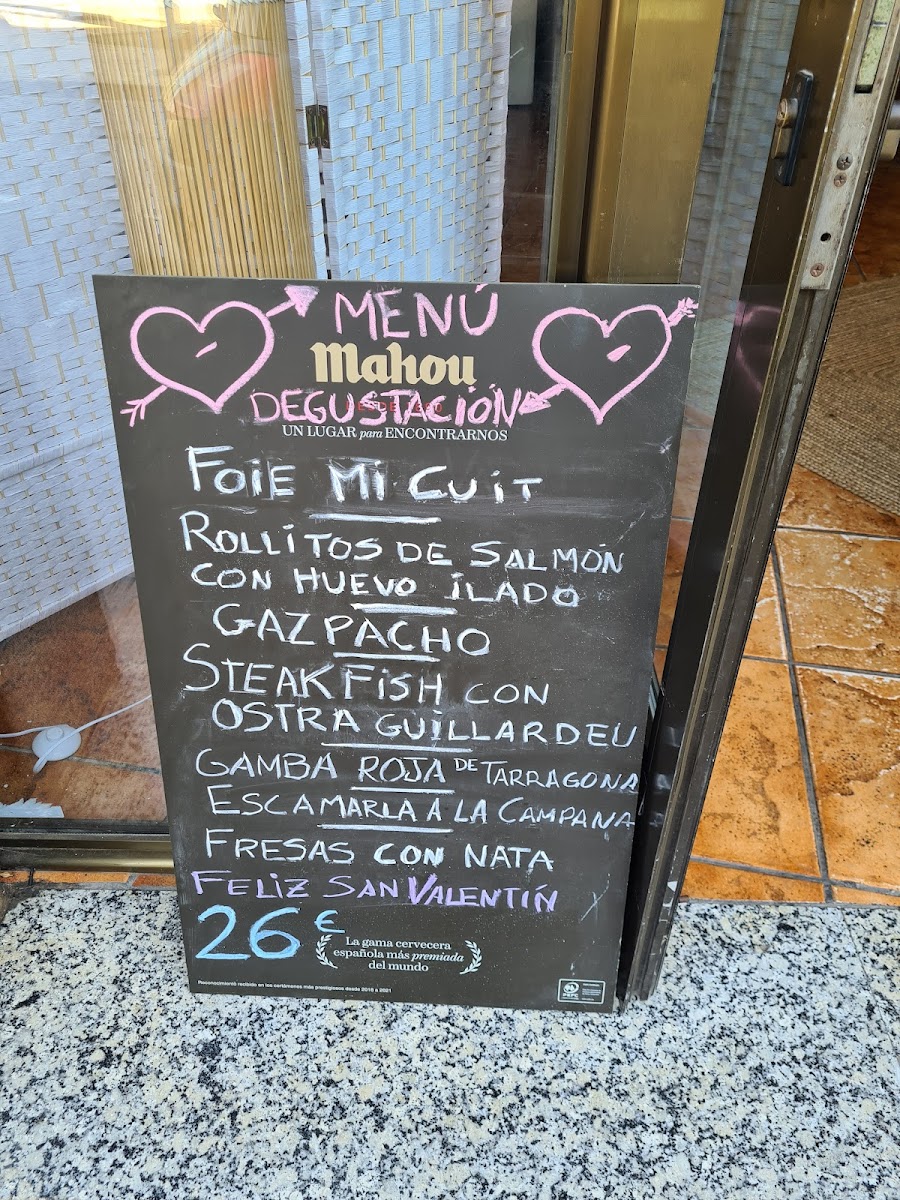 MENÚ
Mahou
DEGUSTACIÓN
UN LUGAR para ENCONTRARNOS
FOIE MI CUIT
ROLLITOS DE SALMÓN
CON HUEVO ILADO
GAZPACHO
STEAK FISH CON
OSTRA GUILLARDEU
GAMBA ROJA DE TARRAGONA
ESCAMARLA A LA CAMPANA
FRESAS CON NATA
FELIZ SAN VALENTÍN
26 €
La gama cervecera
española más premiada
del mundo
Reconocimiento recibido en los certámenes más prestigiosos desde 2016 a 2021
PEFC